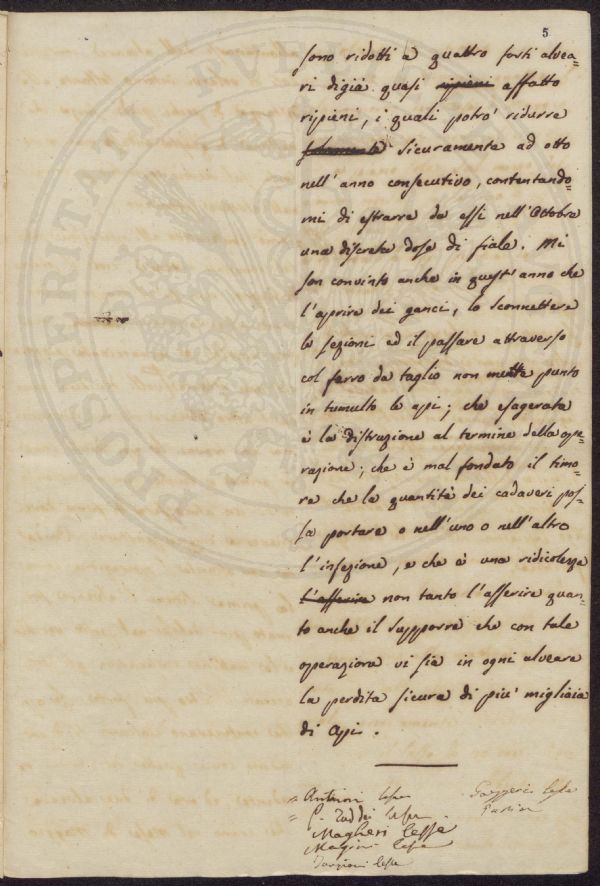 5
sono ridotti a quattro forti alvea=
ri digià quasi ripieni affatto
ripieni, i quali potrò ridurre
sicuramente ad otto
nell'anno consecutivo, contentando=
mi di estrarre da essi nell'Ottobre
una discreta dose di fiale. Mi
son convinto anche in quest'anno che
l'aprire dei ganci, lo sconnettere
le sezioni ed il passare attraverso
col ferro da taglio non mette punto
in tumulto le api; che esagerata
è la distruzione al termine della ope=
razione; che è mal fondato il timo=
re che la quantità dei cadaveri pos=
sa portare o nell'uno o nell'altro
l'infezione, e che è una ridicolezza
l'asserire non tanto l'asserire quan=
to anche il supporre che con tale
operazione vi sia in ogni alveare
la perdita sicura di più migliaia
di Api.
= Antinori lesse
= G. Taddei lesse
Magheri lesse
PROSPERITATI PVBLICAE